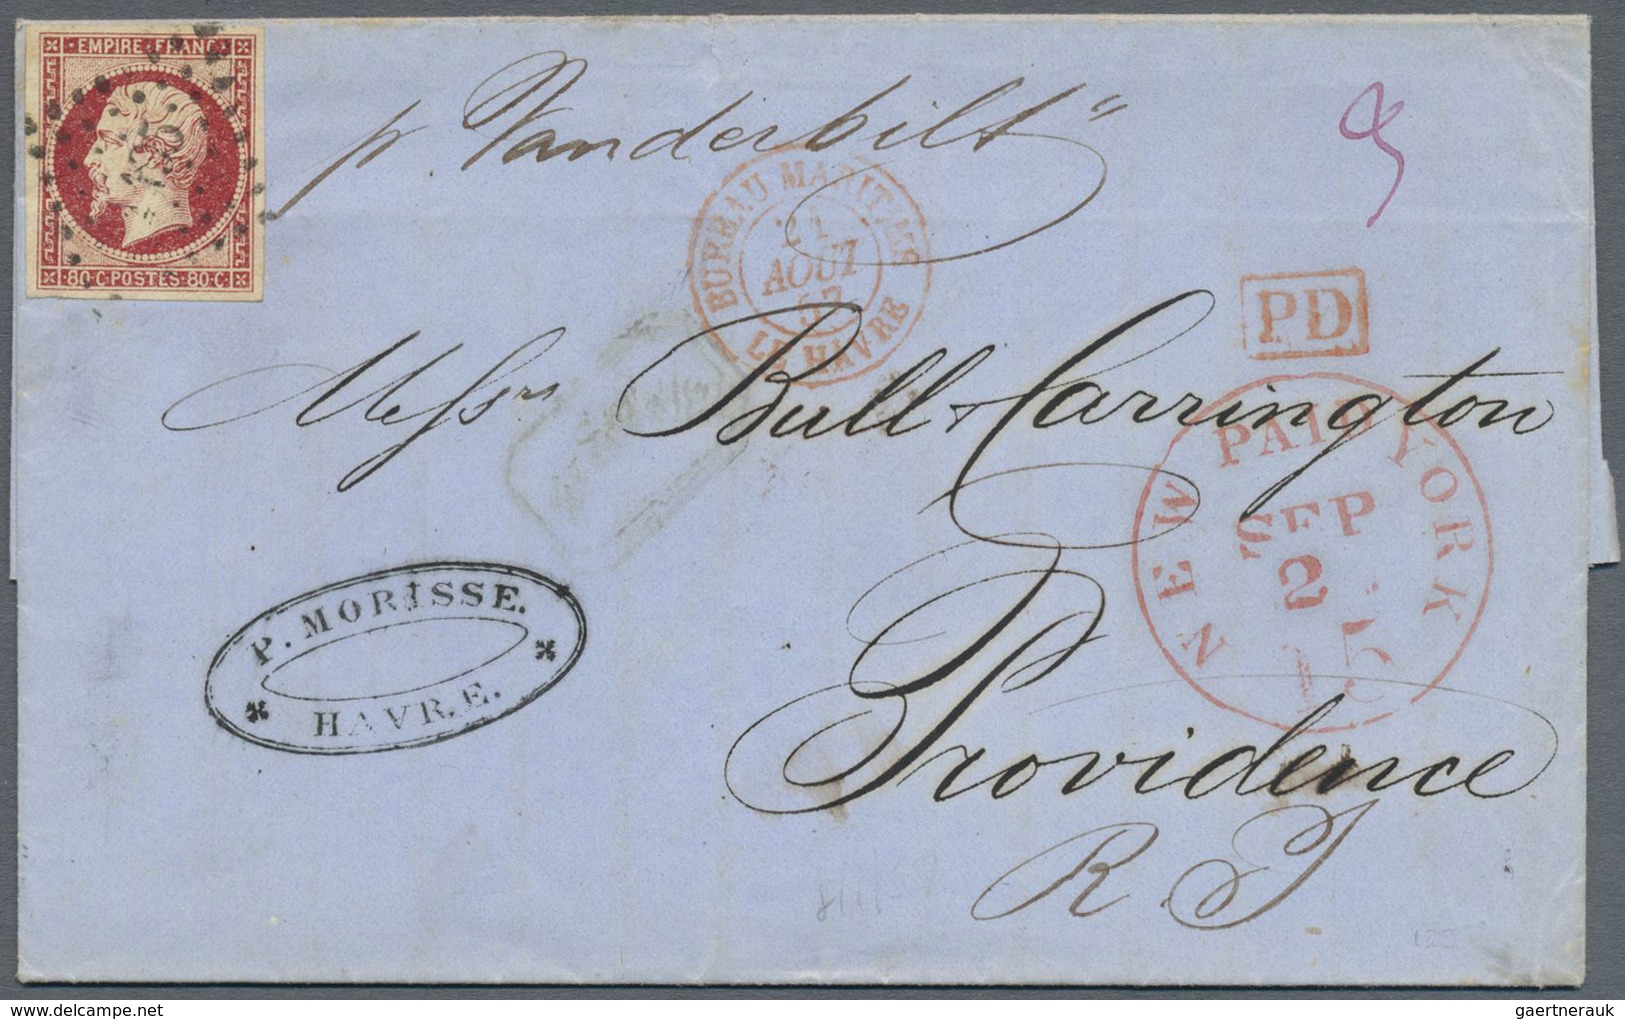 EMPIRE·FRANC·
80·C·POSTES·80·C·
p. "Vanderbilt"
BUREAU MARITIME
21
AOUT
57
LE HAVRE
PD
Messrs Bull & Carrington
NEW PAID YORK
SEP
2
15
P. MORISSE.
HAVRE.
Providence
R. I
gaertnerauk